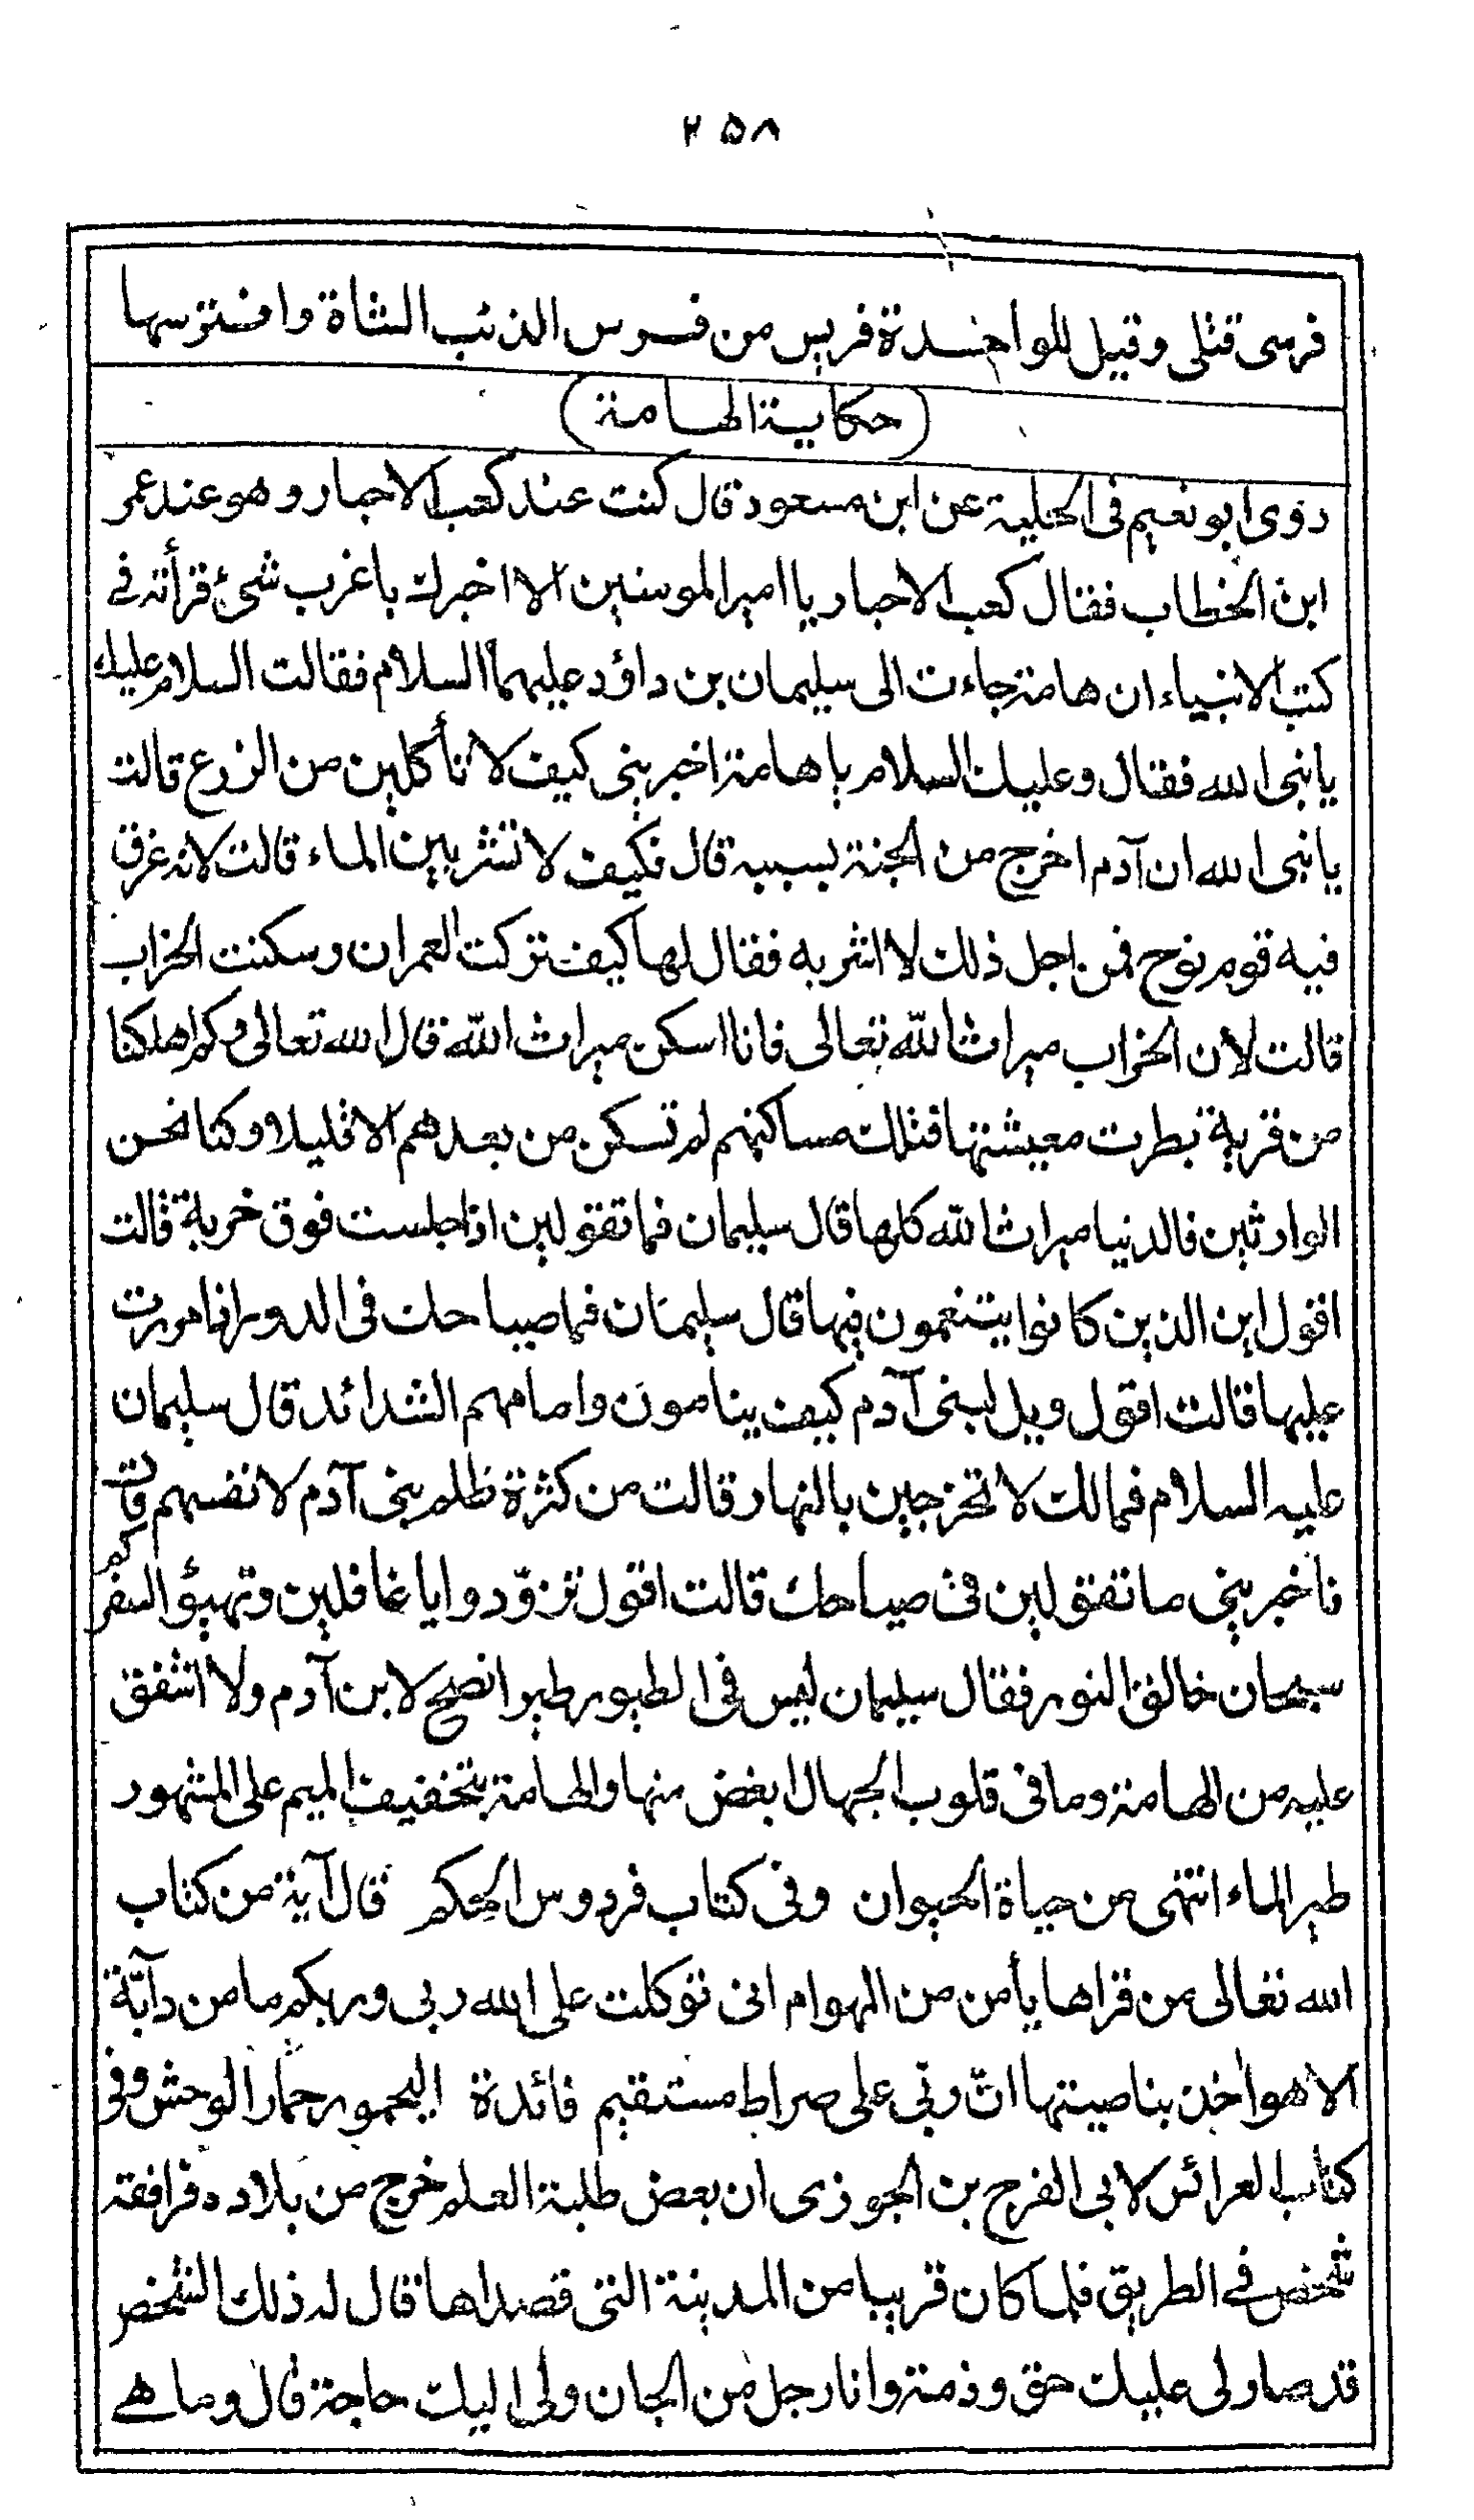 ٢٥٨
فرسى قتلى وقيل للواحدة فريس من فرس الذئب الشاة وافترسها
(حكاية الهامة)
روى ابو نعيم فى الحلية عن ابن مسعود قال كنت عند كعب الاحبار وهو عند عمر
ابن الخطاب فقال كعب الاحبار يا امير المومنين الا اخبرك باغرب شئ قرأته فے
كتب الانبياء ان هامة جاءت الى سليمان بن داؤد عليهما السلام فقالت السلام عليك
يا نبى الله فقال وعليك السلام يا هامة اخبرينى كيف لا تأكلين من الزرع قالت
يا نبى الله ان آدم اخرج من الجنة بسببه قال فكيف لا تشربين الماء قالت لانه غرق
فيه قوم نوح فمن اجل ذلك لا اشربه فقال لها كيف تركت العمران وسكنت الخراب
قالت لان الخراب ميراث الله تعالى فانا اسكن ميراث الله قال الله تعالى وكم اهلكنا
من قرية بطرت معيشتها فتلك مساكنهم لم تسكن من بعدهم الا قليلا وكنا نحن
الوارثين فالدنيا ميراث الله كلها قال سليمان فما تقولين اذا جلست فوق خربة قالت
اقول اين الذين كانوا يتنعمون فيها قال سليمان فما صياحك فى الدور اذا مررت
عليها قالت اقول ويل لبنى آدم كيف ينامون وامامهم الشدائد قال سليمان
عليه السلام فمالك لا تخرجين بالنهار قالت من كثرة ظلم بنى آدم لانفسهم قال
فاخبرينى ما تقولين فى صياحك قالت اقول تزوّدوا يا غافلين وتهيؤ السفركم
سبحان خالق النور فقال سليمان ليس فى الطيور طير انصح لابن آدم ولا اشفق
عليه من الهامة وما فى قلوب الجهال ابغض منها والهامة بتخفيف الميم على المشهور
طير الماء انتهى من حياة الحيوان وفى كتاب فردوس الحكم قال آية من كتاب
الله تعالى من قراها يأمن من الهوام انى توكلت على الله ربى وربكم ما من دآبّة
الا هو اخذ بناصيتها ان ربى على صراط مستقيم فائدة اليحمور حمار الوحش وفى
كتاب العرائس لابى الفرج بن الجوزى ان بعض طلبة العلم خرج من بلاده فرافقه
شخص فے الطريق فلما كان قريبا من المدينة التى قصداها قال له ذلك الشخص
قد صار لى عليك حق وذمة وانا رجل من الجان ولى اليك حاجة قال وما هے